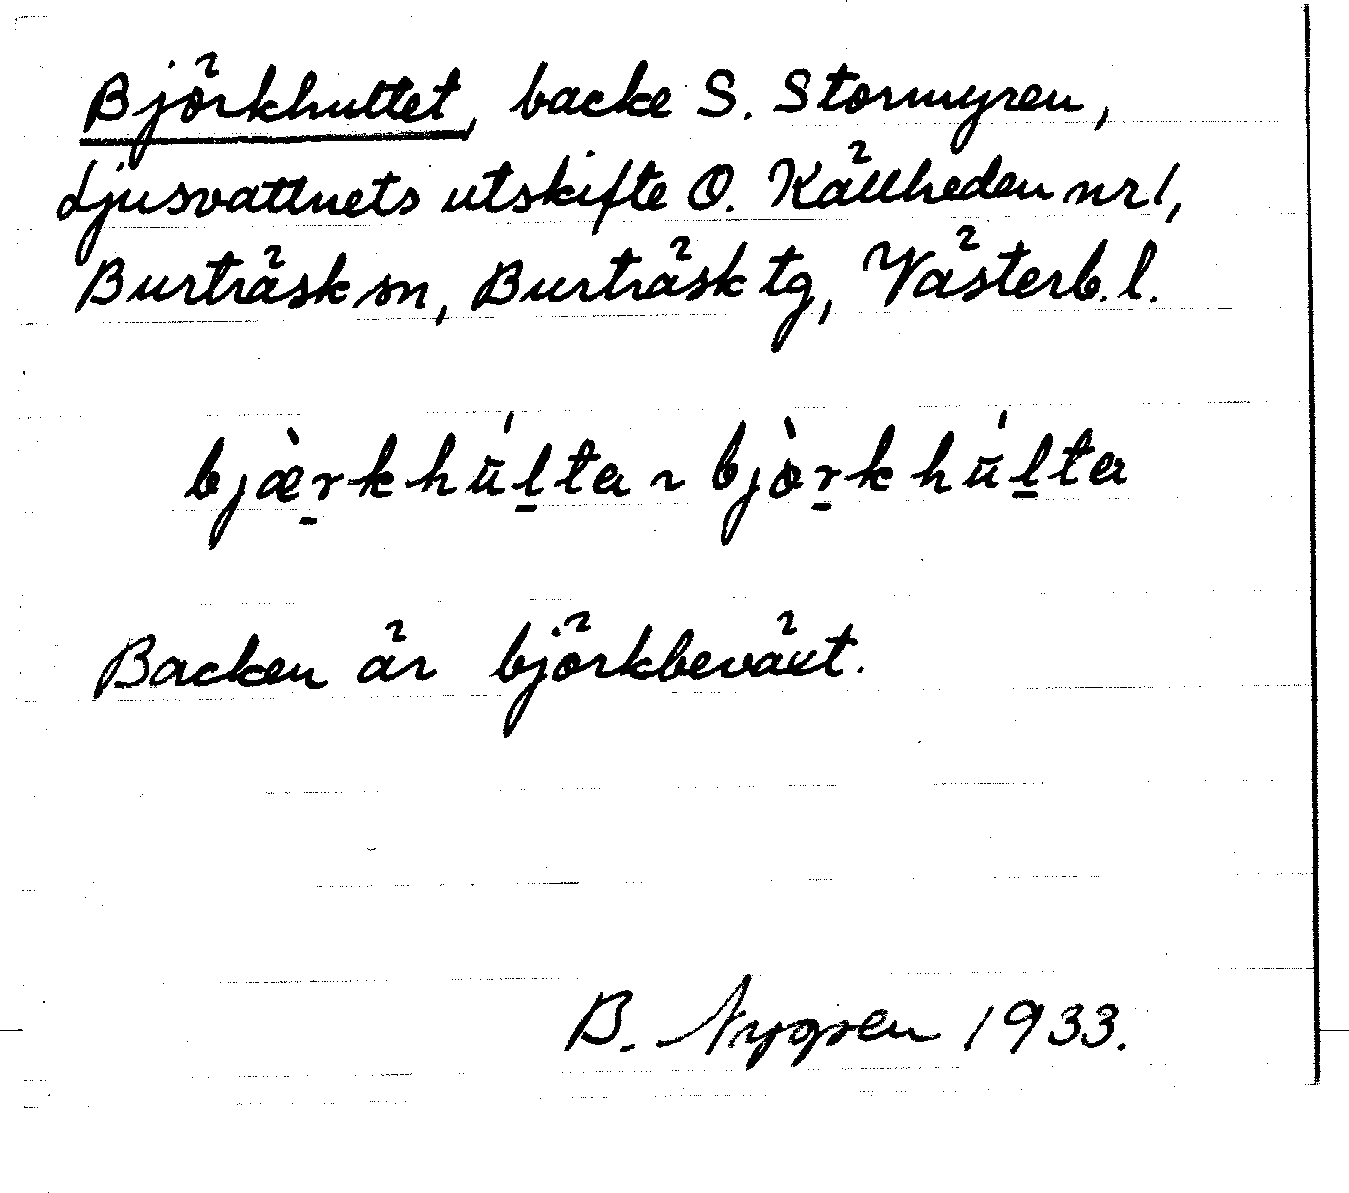 Björkhultet, backe S. Stormyren,
Ljusvattnets utskifte O. Källheden nr 1,
Burträsk sn, Burträsk tg, Västerb. l.
bjæ̀r̠khū́l̠ta ~ bjòr̠khū́l̠ta
Backen är björkbeväxt.
B. Nygren 1933.